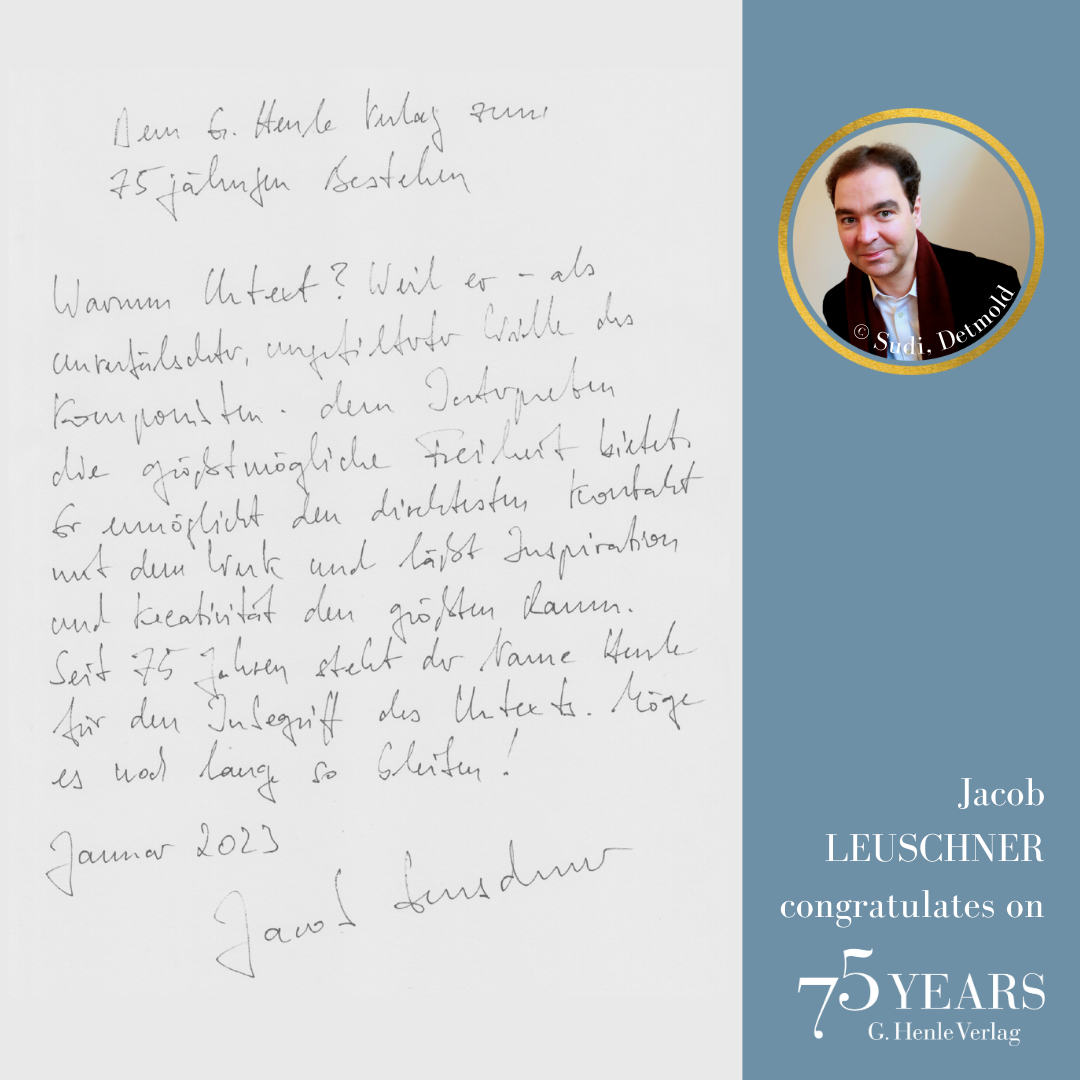 Dem G. Henle Verlag zum
75jährigen Bestehen
Warum Urtext? Weil er – als
unverfälschter, ungefilterter Wille des
Komponisten - dem Interpreten
die größtmögliche Freiheit bietet.
Er ermöglicht den direktesten Kontakt
mit dem Werk und läßt Inspiration
und Kreativität den größten Raum.
Seit 75 Jahren steht der Name Henle
für den Inbegriff des Urtexts. Möge
es noch lange so bleiben!
Januar 2023
Jacob Leuschner
© Sudi, Detmold
Jacob
LEUSCHNER
congratulates on
75 YEARS
G. Henle Verlag